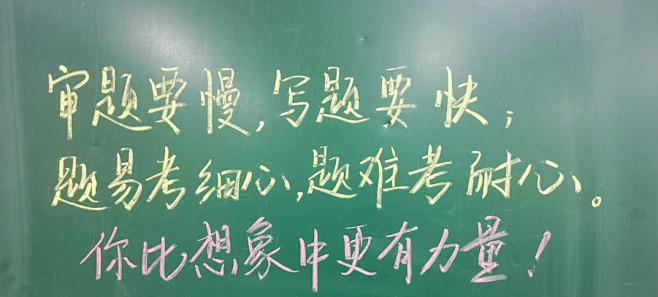 审题要慢,写题要快;
题易考细心,题难考耐心。
你比想象中更有力量!